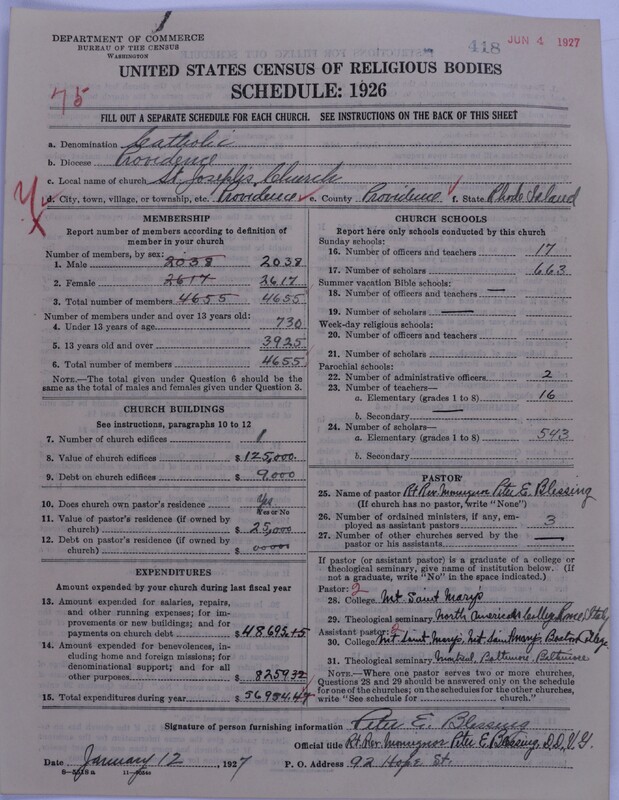 DEPARTMENT OF COMMERCE
BUREAU OF THE CENSUS
WASHINGTON
418
JUN 4 1927
UNITED STATES CENSUS OF RELIGIOUS BODIES
SCHEDULE: 1926
75
FILL OUT A SEPARATE SCHEDULE FOR EACH CHURCH. SEE INSTRUCTIONS ON THE BACK OF THIS SHEET
a. Denomination Catholic
b. Diocese Providence
c. Local name of church St. Joseph's Church
d. City, town, village, or township, etc. Providence e. County Providence f. State Rhode Island
MEMBERSHIP
Report number of members according to definition of member in your church
Number of members, by sex:
1. Male 2038 2038
2. Female 2617 2617
3. Total number of members 4655 4655
Number of members under and over 13 years old:
4. Under 13 years of age 730
5. 13 years old and over 3925
6. Total number of members 4655
NOTE.—The total given under Question 6 should be the same as the total of males and females given under Question 3.
CHURCH BUILDINGS
See instructions, paragraphs 10 to 12
7. Number of church edifices 1
8. Value of church edifices $ 125,000
9. Debt on church edifices $ 9,000
10. Does church own pastor's residence Yes
Yes or No
11. Value of pastor's residence (if owned by church) $ 25,000
12. Debt on pastor's residence (if owned by church) $
EXPENDITURES
Amount expended by your church during last fiscal year
13. Amount expended for salaries, repairs, and other running expenses; for improvements or new buildings; and for payments on church debt $
14. Amount expended for benevolences, including home and foreign missions; for denominational support; and for all other purposes $ 8259 32
15. Total expenditures during year $
CHURCH SCHOOLS
Report here only schools conducted by this church
Sunday schools:
16. Number of officers and teachers 17
17. Number of scholars 663
Summer vacation Bible schools:
18. Number of officers and teachers —
19. Number of scholars —
Week-day religious schools:
20. Number of officers and teachers
21. Number of scholars
Parochial schools:
22. Number of administrative officers 2
23. Number of teachers—
a. Elementary (grades 1 to 8) 16
b. Secondary —
24. Number of scholars—
a. Elementary (grades 1 to 8) 543
b. Secondary
PASTOR
25. Name of pastor Rt. Rev. Monsignor Peter E. Blessing
(If church has no pastor, write "None")
26. Number of ordained ministers, if any, employed as assistant pastors 3
27. Number of other churches served by the pastor or his assistants —
If pastor (or assistant pastor) is a graduate of a college or theological seminary, give name of institution below. (If not a graduate, write "No" in the space indicated.)
Pastor: 2
28. College Mt. Saint Mary's
29. Theological seminary North American College Rome Italy
Assistant pastor:
30. College Mt. Saint Mary's, Mt. Saint Mary's, Boston College
31. Theological seminary Montreal, Baltimore, Baltimore
NOTE.—Where one pastor serves two or more churches, Questions 28 and 29 should be answered only on the schedule for one of the churches; on the schedules for the other churches, write "See schedule for church."
Signature of person furnishing information Peter E. Blessing
Official title Rt. Rev. Monsignor Peter E. Blessing, D.D., V.G.
Date January 12, 1927 P. O. Address 92 Hope St.